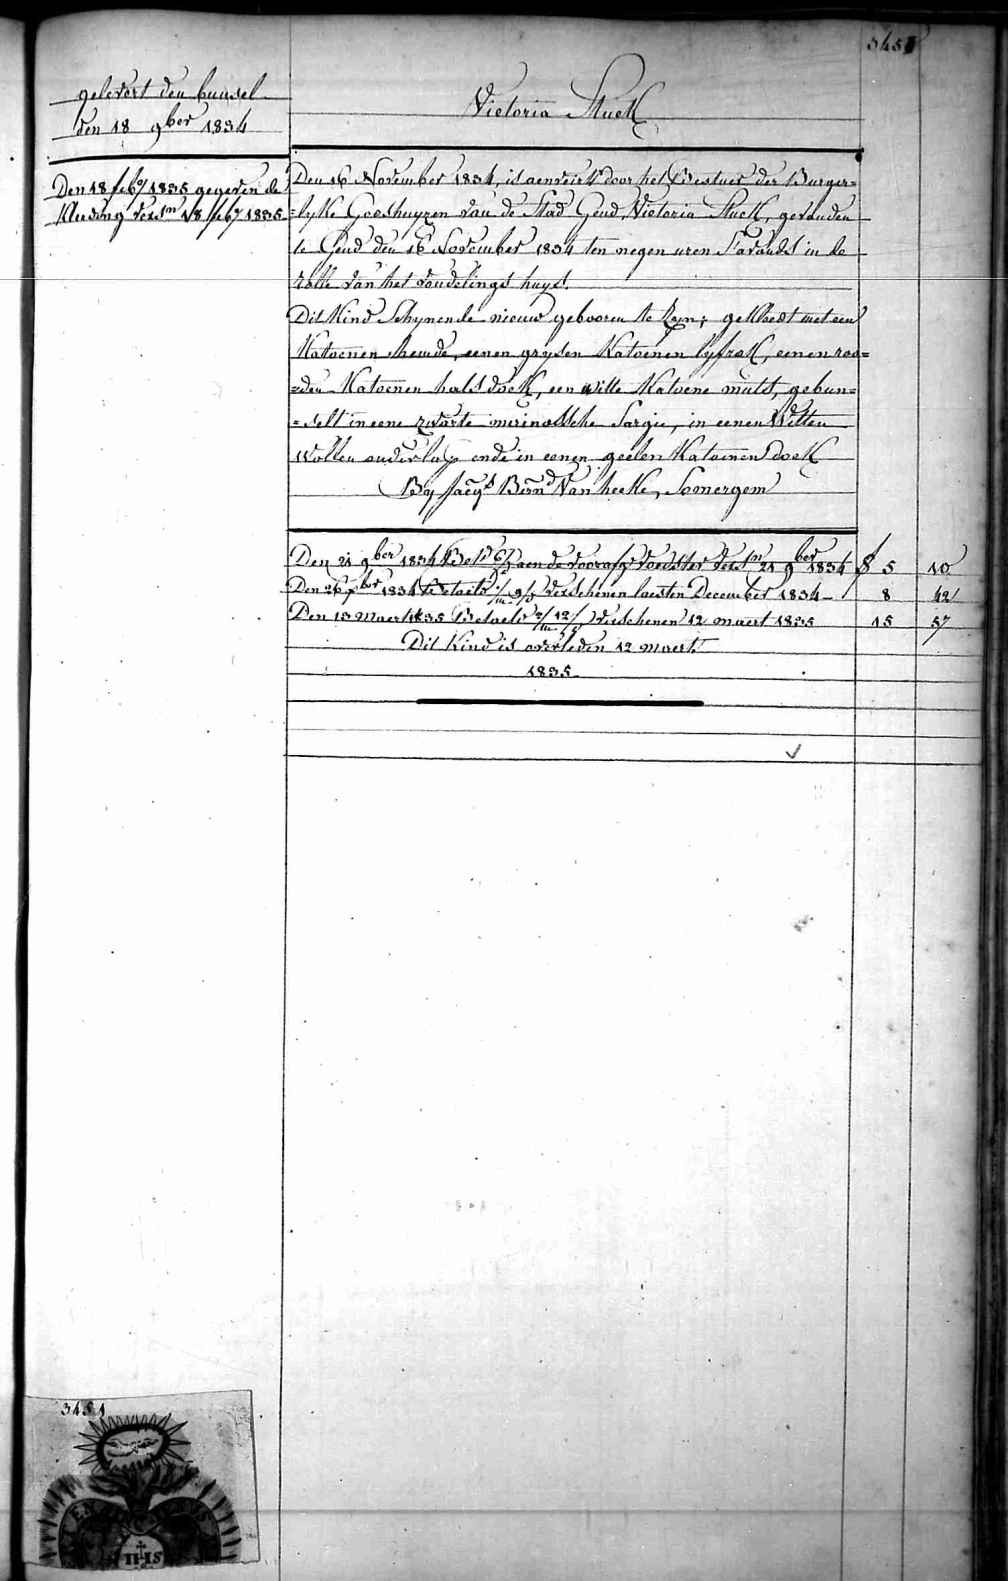 3451
gelevert den bunsel
den 18 9ber 1834
Victoria Stuck
Den 18 feby 1835 gegeven de
Kleeding versn 18 feby 1835
Den 16 November 1834, is aenveirt door het Bestuer der Burger=
=lyke Godshuyzen van de Stad Gend, Victoria Stuck, gevonden
te Gend den 16 November 1834 ten negen uren S'avonds in de
rolle van het vondelings huys.
Dit Kind Schynende nieuw gebooren te Zyn; gekleedt met een
Kattoenen hemde, eenen grysen Katoenen lyfrok, eenen roo=
=den Katoenen halsdoek, een witte Katoene muts, gebun=
=selt in eene zwarte merinossche Sargie, in eenen Witten
Wollen onderlag ende in eenen geelen Katoenen doek
By Jacqs Bernd Van hecke, Somergem
Den 21 9ber 1834 aen de voedster versn 21 9ber 1834 5 10
Den 26 1834 verschenen laesten December 1834 8 42
Den 13 Maert 1835 Betaelt 2/m 12/ verschenen 12 maert 1835 15 57
Dit Kind is overleden 12 maert
1835
3451
IHS